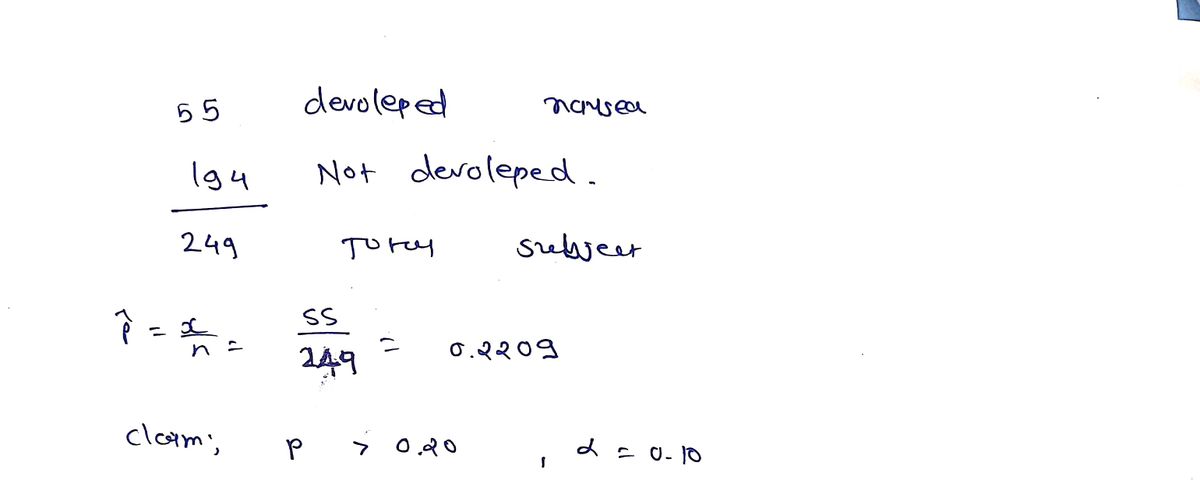 55 devoleped nausea
194 Not devoleped.
249 Total subject
p̂ = x/n = 55/249 = 0.2209
claim; p > 0.20 , α = 0.10